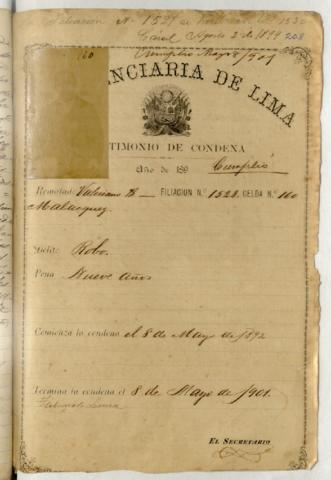 Filiacion Nº 1529
Agosto 2 de 1899 208
Cumplio Mayo 8/901
160
NCIARIA DE LIMA
TIMONIO DE CONDENA
Año de 189 Cumplió
Rematado Valeriano B FILIACION N.º 1528. CELDA N.º 160
Malasquez
Delito: Robo.
Pena Nueve Años
Comienza la condena el 8 de Mayo de 1892
Termina la condena el 8 de Mayo de 1901.
EL SECRETARIO